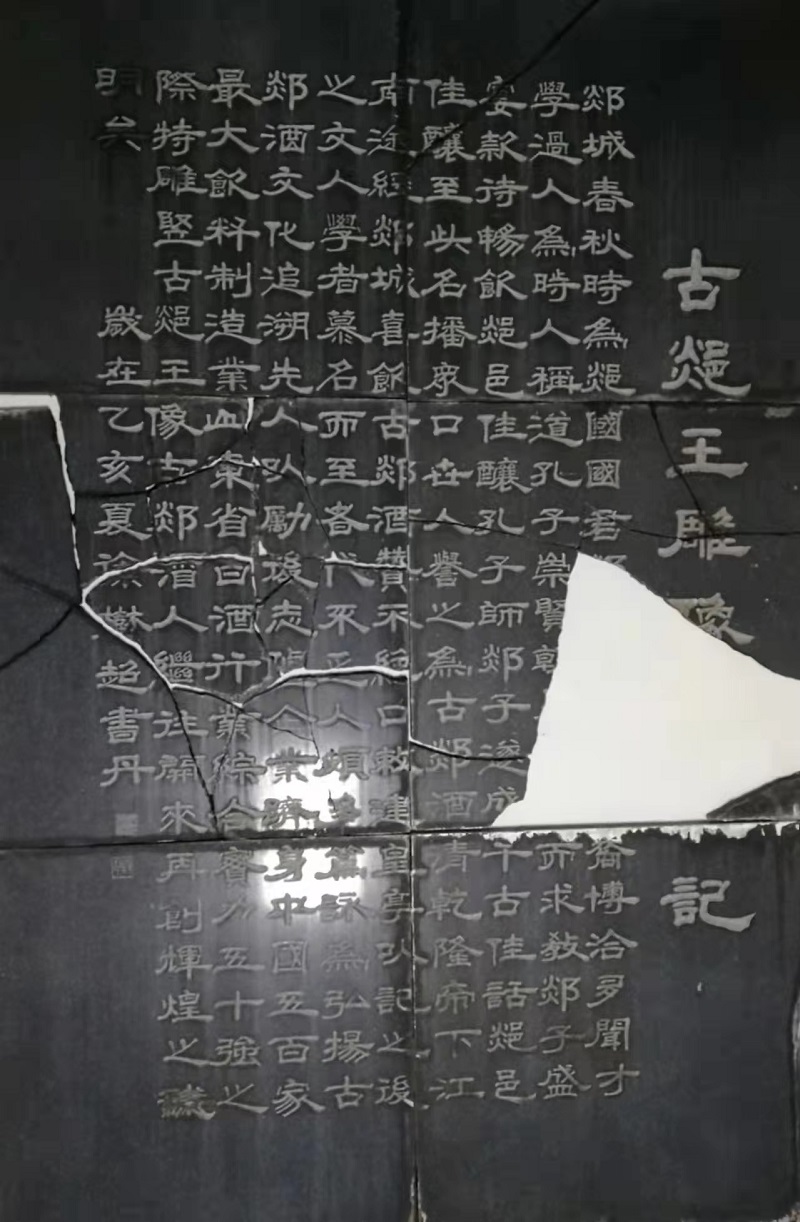 古郯王雕像記
郯城春秋時為郯國國君裔博洽多聞才
學過人為時人稱道孔子崇賢而求教郯子盛
宴款待暢飲郯邑佳釀孔子師郯子遂成千古佳話郯邑
佳釀至此名播眾口世人譽之為古郯酒清乾隆帝下江
南途經郯城喜飲古郯酒贊不絕口敕建皇亭以記之後
之文人學者慕名而至各代不乏人頌多篇詠為弘揚古
郯酒文化追溯先人以勵後志業躋身中國五百家
最大飲料制造業山東省白酒行業綜合實力五十強之
際特雕竪古郯王像古郯酒人繼往開來再創輝煌之
明矣
歲在乙亥夏徐樹超書丹